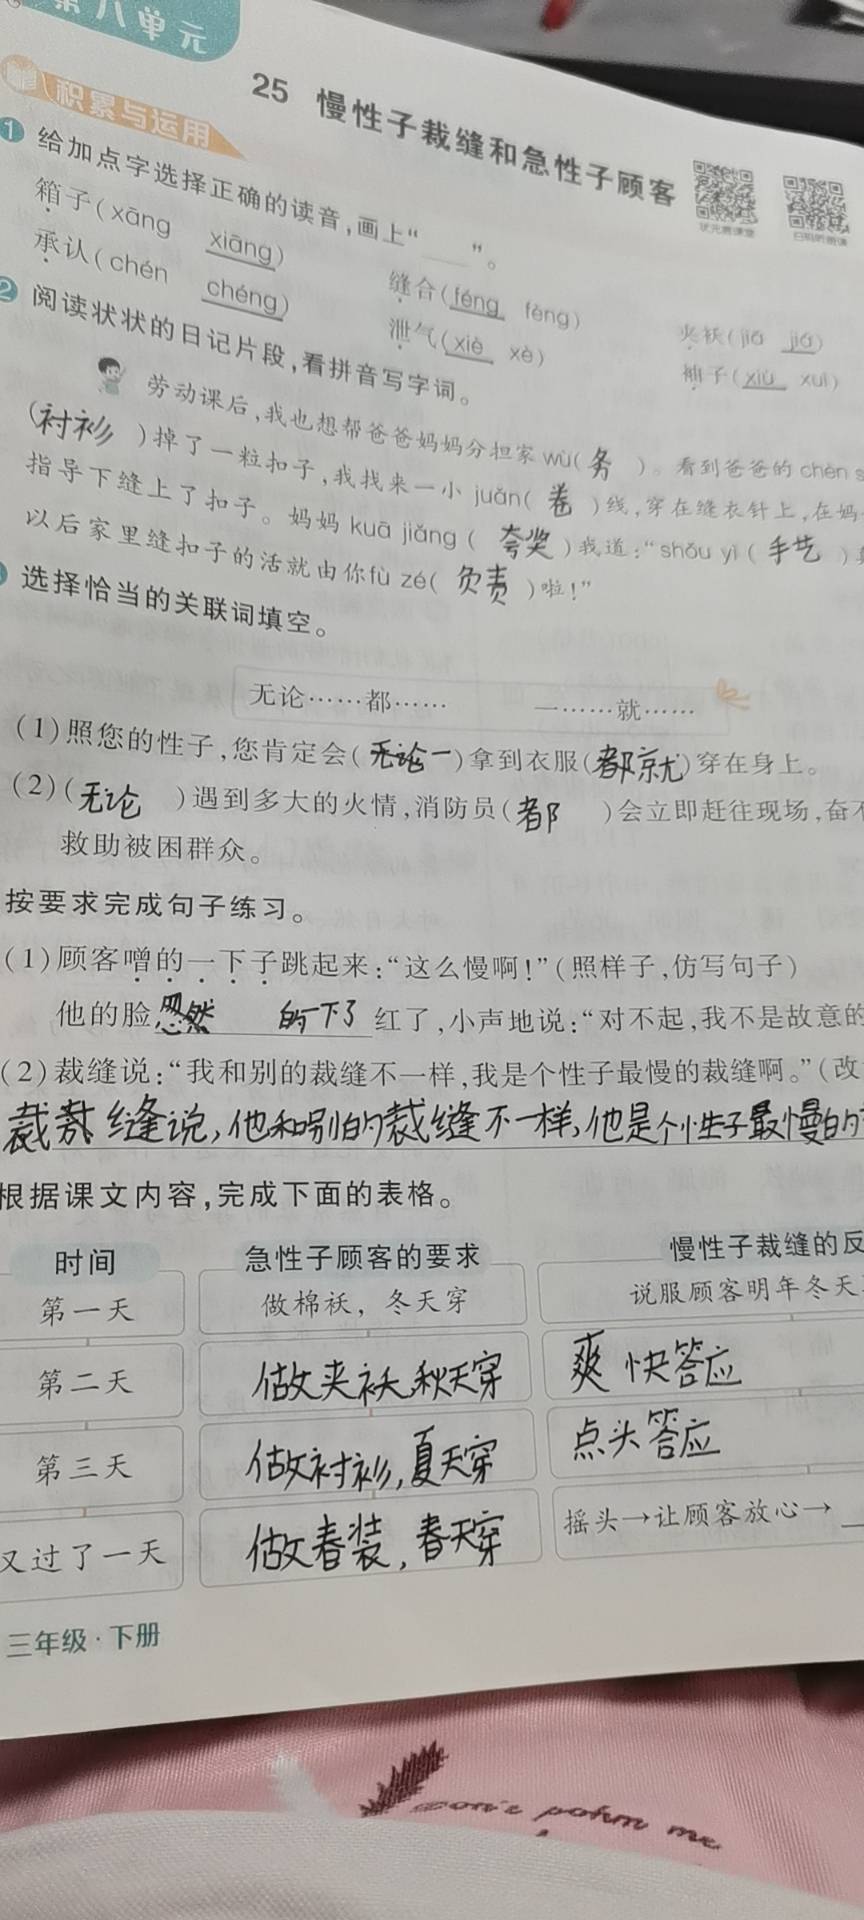 第八单元
25 慢性子裁缝和急性子顾客
积累与运用
状元嘉课堂
扫码听朗读
1 给加点字选择正确的读音,画上“____”。
箱子(xāng xiāng) 缝合(féng fèng) 夹袄(jiā jiá)
承认(chén chéng) 泄气(xiè xè) 袖子(xiù xuì)
2 阅读状状的日记片段,看拼音写字词。
劳动课后,我也想帮爸爸妈妈分担家wù(务)。看到爸爸的chèn s
(衬衫)掉了一粒扣子,我找来一小juǎn(卷)线,穿在缝衣针上,在妈
指导下缝上了扣子。妈妈kuā jiǎng(夸奖)我道:“shǒu yì(手艺)
以后家里缝扣子的活就由你fù zé(负责)啦!”
选择恰当的关联词填空。
无论……都…… 一……就……
(1)照您的性子,您肯定会(无论一)拿到衣服(都就)穿在身上。
(2)(无论)遇到多大的火情,消防员(都)会立即赶往现场,奋不
救助被困群众。
按要求完成句子练习。
(1)顾客噌的一下子跳起来:“这么慢啊!”(照样子,仿写句子)
他的脸忽然 的一下子红了,小声地说:“对不起,我不是故意的
(2)裁缝说:“我和别的裁缝不一样,我是个性子最慢的裁缝啊。”(改
缝说,他和别的裁缝不一样,他是个性子最慢的
根据课文内容,完成下面的表格。
时间 急性子顾客的要求 慢性子裁缝的反
第一天 做棉袄,冬天穿 说服顾客明年冬天
第二天 做夹袄,秋天穿 爽快答应
第三天 做衬衫,夏天穿 点头答应
又过了一天 做春装,春天穿 摇头→让顾客放心→
三年级·下册
me